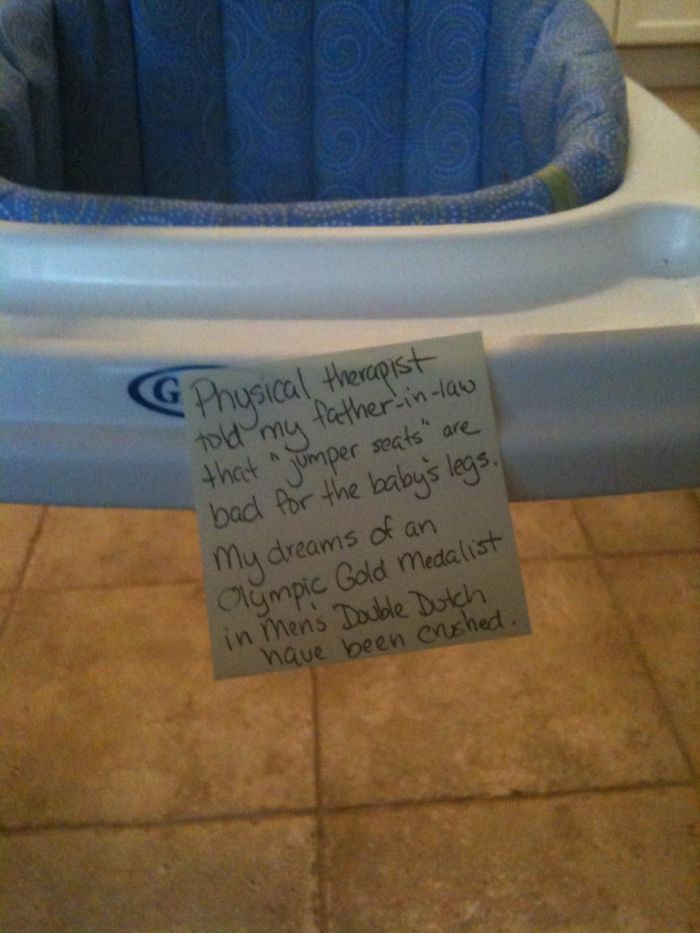 G
Physical therapist
told my father-in-law
that "jumper seats" are
bad for the baby's legs.
My dreams of an
Olympic Gold Medalist
in Men's Double Dutch
have been crushed.